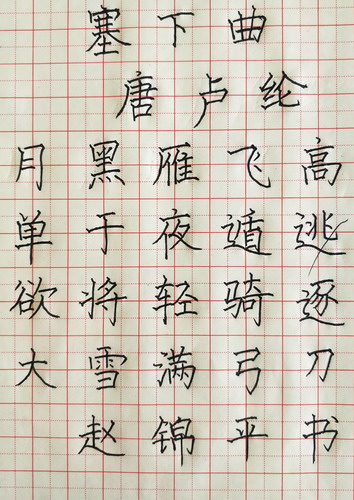 塞下曲
唐卢纶
月黑雁飞高
单于夜遁逃
欲将轻骑逐
大雪满弓刀
赵锦平书